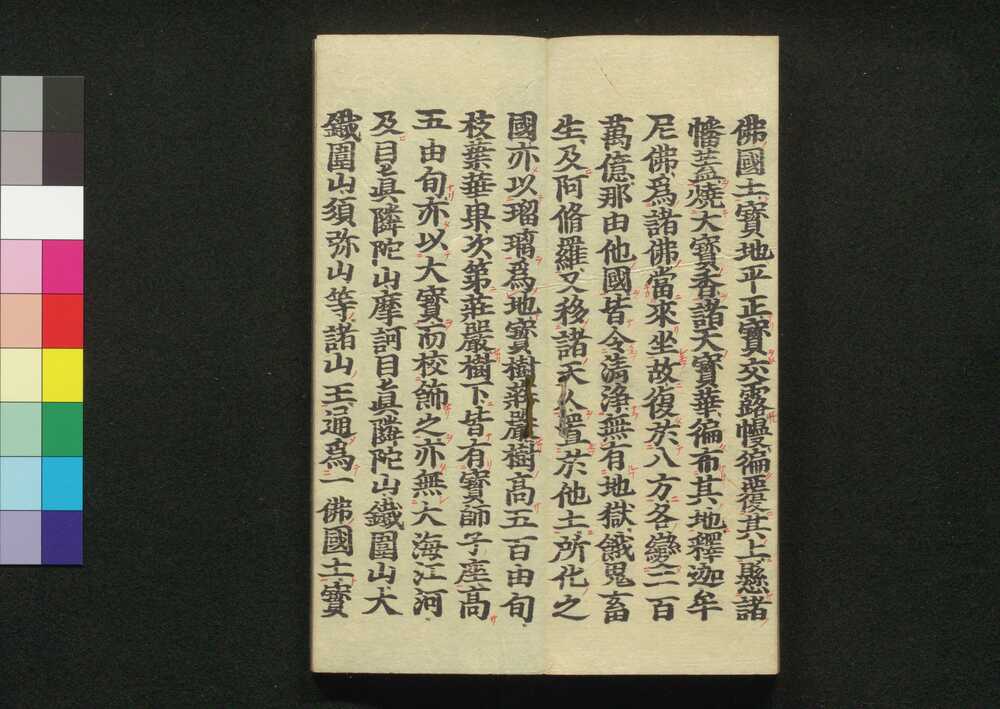 佛國土寶地平正寶交露幔徧覆其上懸諸
幡蓋燒大寶香諸天寶華徧布其地釋迦牟
尼佛爲諸佛當來坐故復於八方各變二百
萬億那由他國皆令清淨無有地獄餓鬼畜
生及阿脩羅又移諸天人置於他土所化之
國亦以瑠璃爲地寶樹莊嚴樹高五百由旬
枝葉華果次第莊嚴樹下皆有寶師子座高
五由旬亦以大寶而校飾之亦無大海江河
及目真隣陀山摩訶目真隣陀山鐵圍山大
鐵圍山須弥山等諸山王通爲一佛國土寶